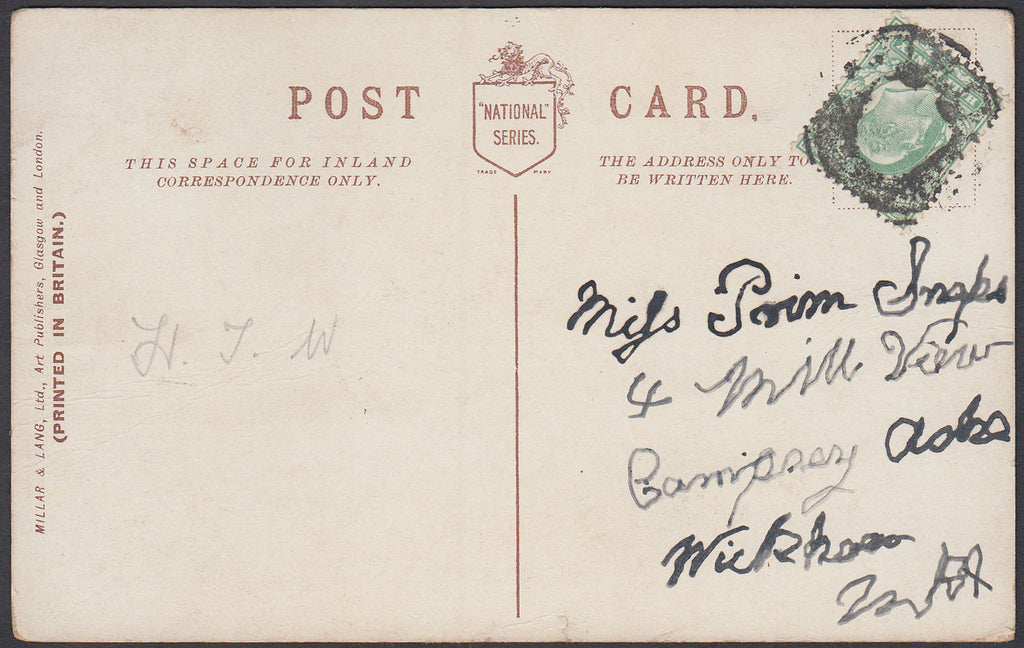 POST CARD.
"NATIONAL"
SERIES.
TRADE MARK
THIS SPACE FOR INLAND
CORRESPONDENCE ONLY.
THE ADDRESS ONLY TO
BE WRITTEN HERE.
MILLAR & LANG, Ltd., Art Publishers, Glasgow and London.
(PRINTED IN BRITAIN.)
H. J. W
Miss Prim Snaps
4 Mill View
Campsey Ashs
Wickham